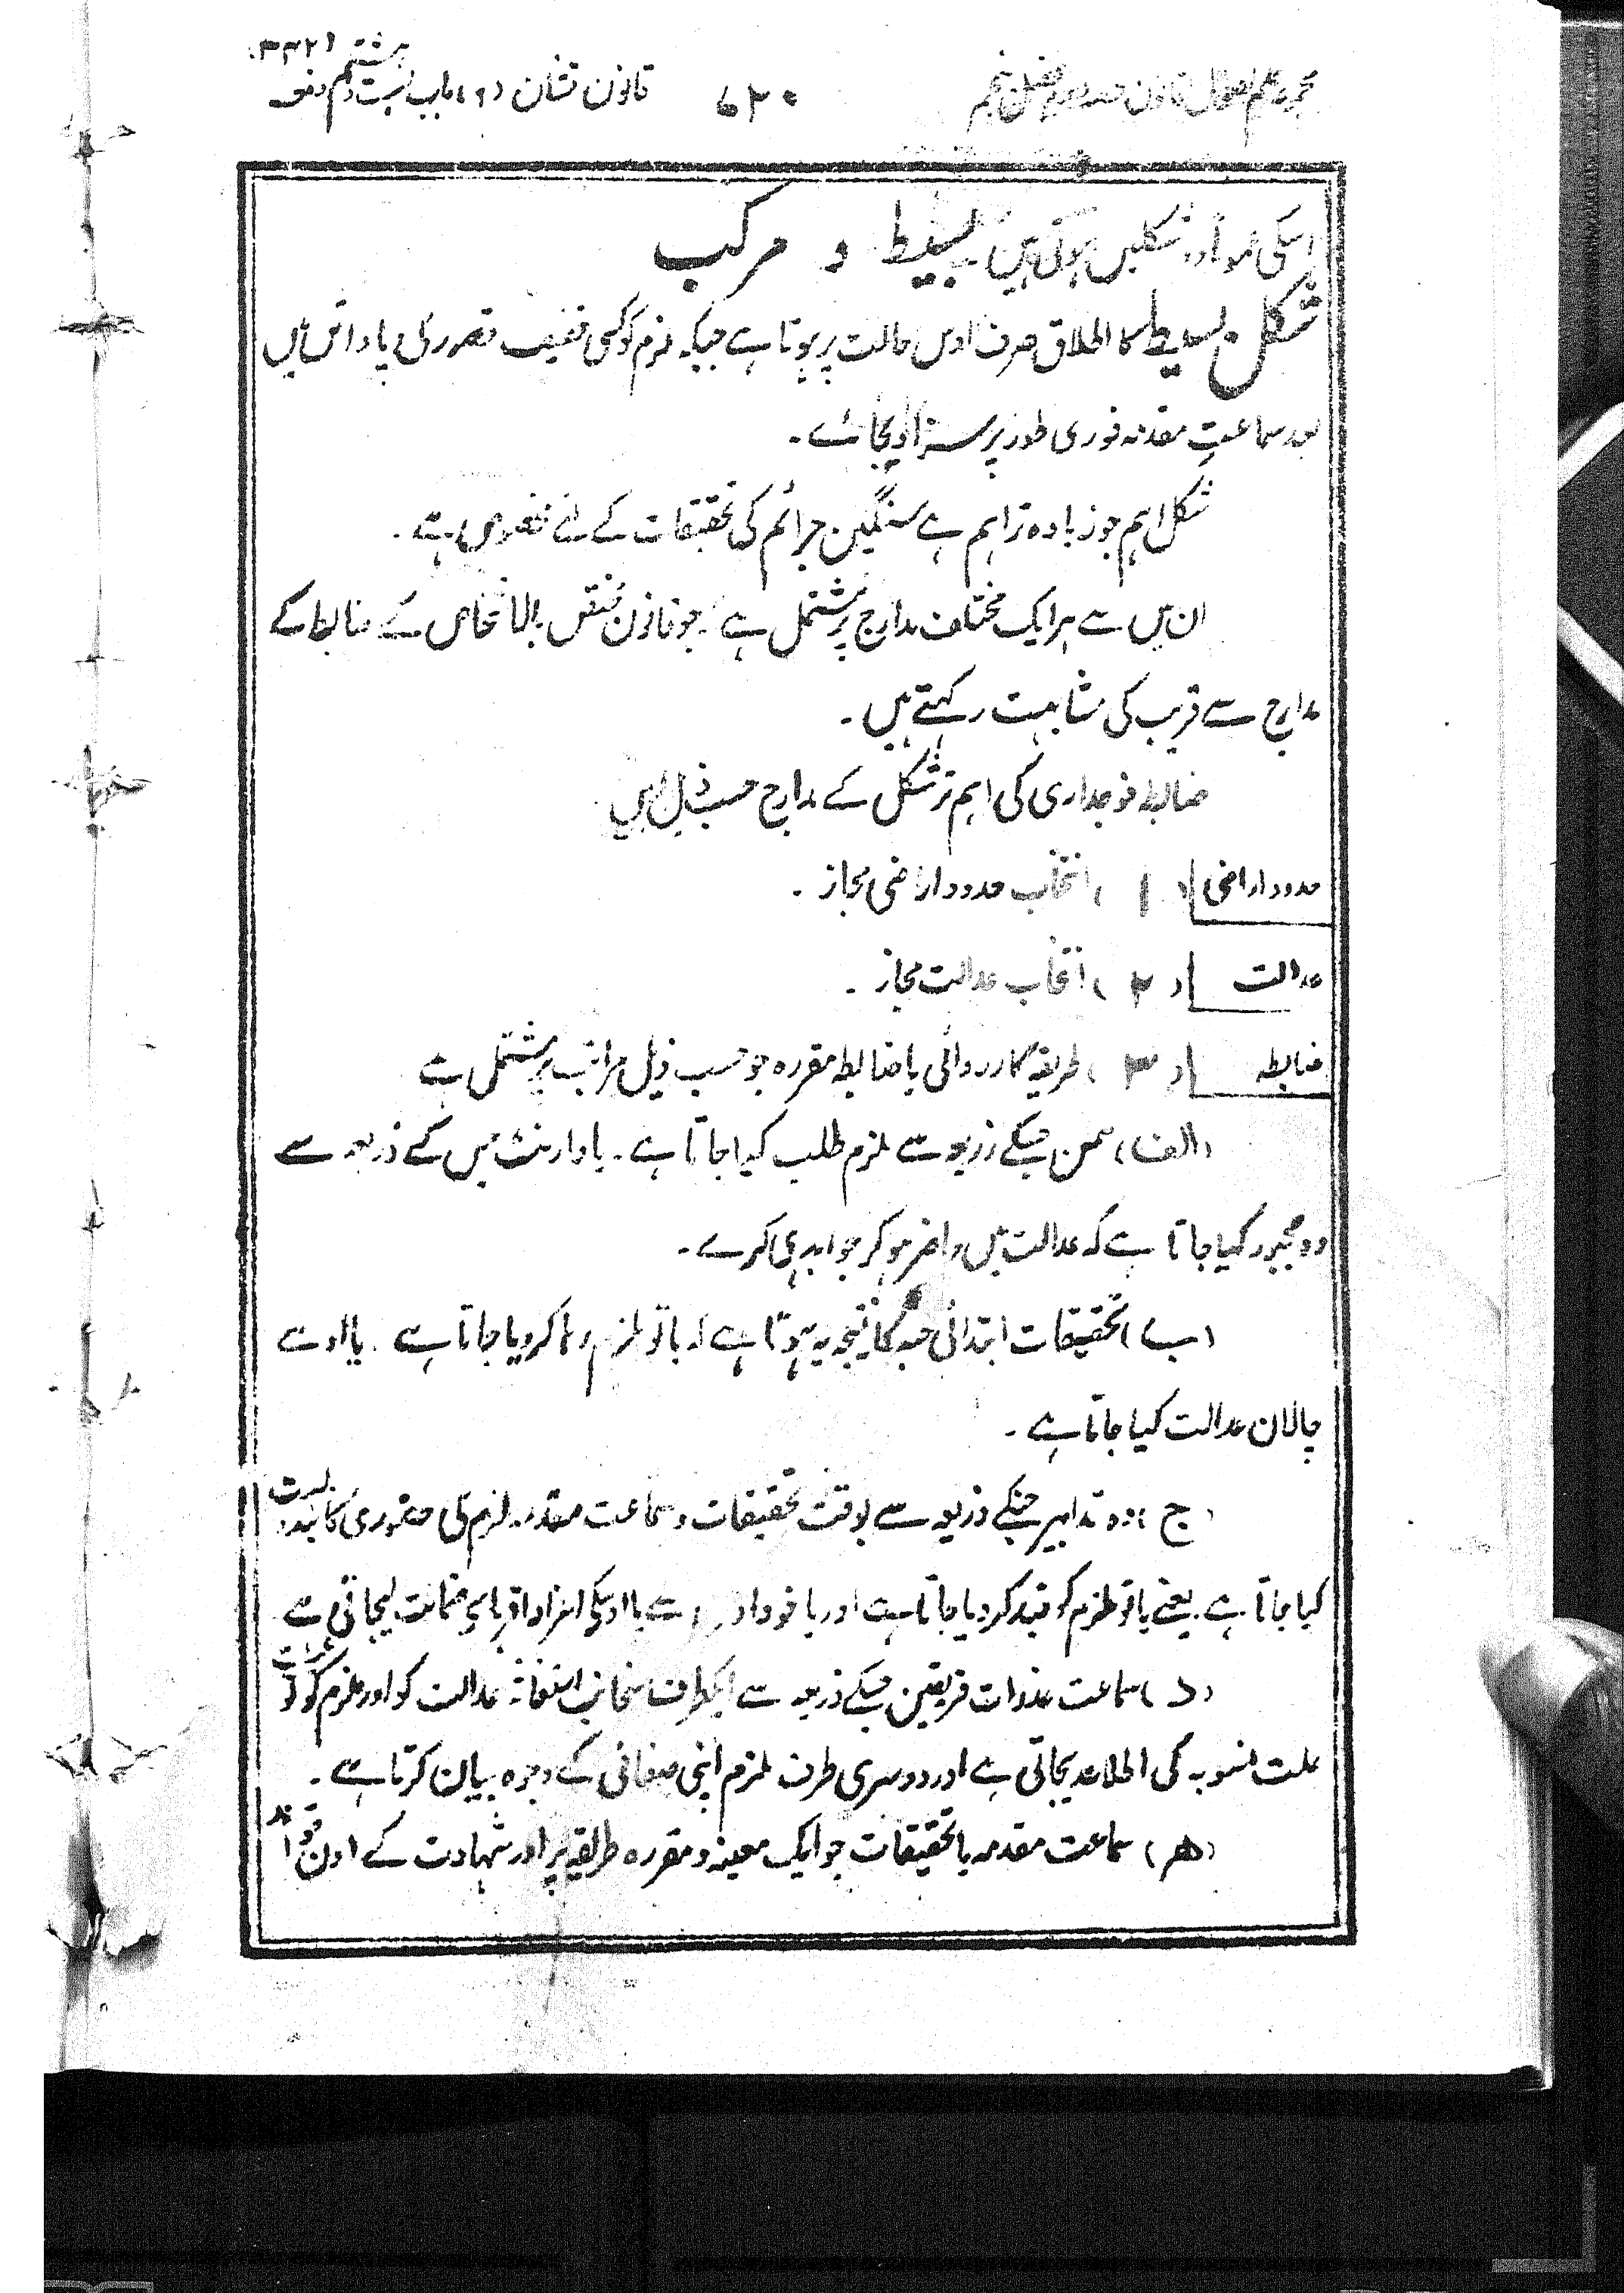 قانون نشان (۹) باب بست و ہشتم دفعہ (۳۳۲)
۶۲۰
اسکی عموماً دو شکلیں ہوتی ہیں۔ بسیط و مرکب
شکل بسیط کا اطلاق صرف اوس حالت پر ہوتا ہے جبکہ ملزم کو کسی خفیف قصور کی پاداش میں
بعد سماعت مقدمہ فوری طور پر سزا دیجائے۔
شکل اہم جو زیادہ تر اہم ہے سنگین جرائم کی تحقیقات کے لئے مخصوص ہے۔
ان میں سے ہر ایک مختلف مدارج پر مشتمل ہے۔ جو قانون مختص بالاشخاص کے ضابطہ کے
مدارج سے قریب کی مشابہت رکہتے ہیں۔
ضابطہ فوجداری کی اہم تر شکل کے مدارج حسب ذیل ہیں
حدود اراضی (۱) انتخاب حدود اراضی مجاز۔
عدالت (۲) انتخاب عدالت مجاز۔
ضابطہ (۳) طریقہ کارروائی یا ضابطہ مقررہ جو حسب ذیل مراتب پر مشتمل ہے
(الف) سمن جسکے ذریعہ سے ملزم طلب کیا جاتا ہے۔ یا وارنٹ جس کے ذریعہ سے
وہ مجبور کیا جاتا ہے کہ عدالت میں حاضر ہو کر جوابدہی کرے۔
(ب) تحقیقات ابتدائی جسکا نتیجہ یہ ہوتا ہے کہ یا تو ملزم رہا کر دیا جاتا ہے۔ یا اوسے
چالان عدالت کیا جاتا ہے۔
(ج) وہ تدابیر جنکے ذریعہ سے بوقت تحقیقات و سماعت مقدمہ ملزم کی حضوری کا بندوبست
کیا جاتا ہے۔ یعنے یا تو ملزم کو قید کر دیا جاتا ہے اور یا خود اوس سے یا اوسکی اعزا و اقربا سے ضمانت لیجاتی ہے
(د) سماعت عذرات فریقین جسکے ذریعہ سے ایکطرف منجانب استغاثہ عدالت کو اور ملزم کو نوعیت
علت منسوبہ کی اطلاع دیجاتی ہے اور دوسری طرف ملزم اپنی صفائی کے وجوہ بیان کرتا ہے۔
(ھ) سماعت مقدمہ یا تحقیقات جو ایک معینہ و مقررہ طریقہ پر اور شہادت کے اون قواعد